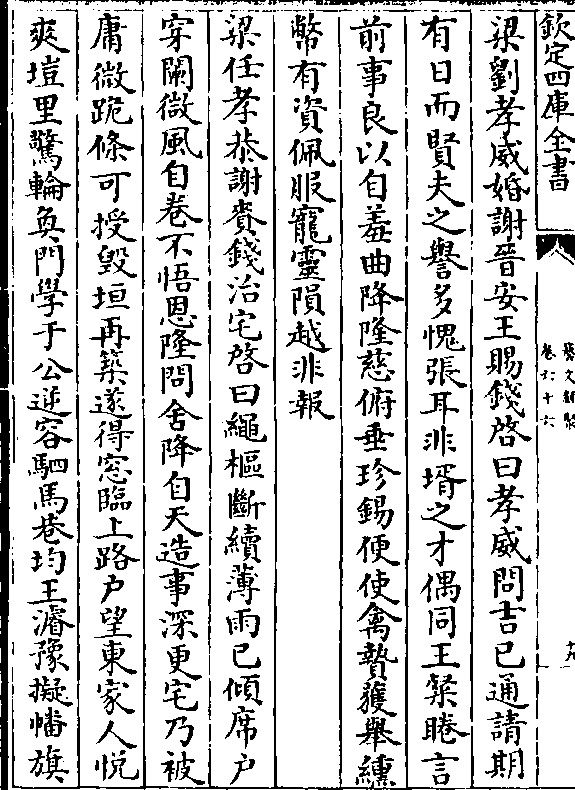 欽定四庫全書
藝文類聚
卷六十六
十九
梁劉孝威婚謝晉安王賜錢啓曰孝威問吉已通請期
有日而賢夫之譽多愧張耳非壻之才偶同王粲睠言
前事良以自羞曲降隆慈俯垂珍錫便使禽贄獲舉纁
幣有資佩服寵靈隕越非報
梁任孝恭謝賚錢治宅啓曰繩樞斷續薄雨已傾席户
穿闕微風自卷不悟恩隆問舍降自天造事深更宅乃被
庸微跪條可授毀垣再築遂得窓臨上路户望東家人悦
爽塏里驚輪奐門學于公逆容駟馬巷均王濬豫擬幡旗